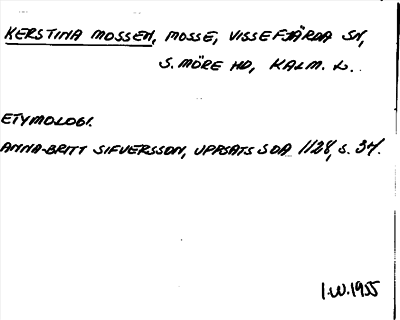 KERSTINA MOSSEN, MOSSE, VISSEFJÄRDA SN,
S. MÖRE HD, KALM. L.
ETYMOLOGI.
ANNA-BRITT SIFVERSSON, UPPSATS SDA 1128, S. 34.
I.W. 1955